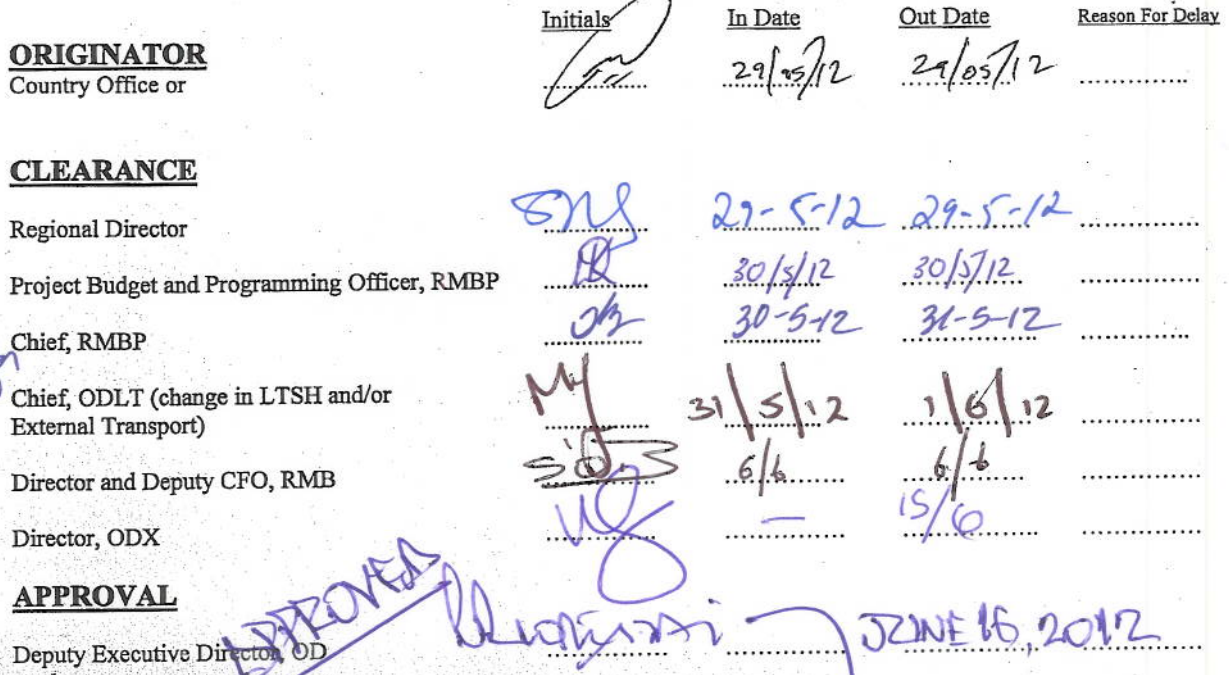 Initials In Date Out Date Reason For Delay
ORIGINATOR
Country Office or 29/05/12 29/05/12
CLEARANCE
Regional Director 29-5-12 29-5-12
Project Budget and Programming Officer, RMBP 30/5/12 30/5/12
Chief, RMBP 30-5-12 31-5-12
Chief, ODLT (change in LTSH and/or
External Transport) 31/5/12 1/6/12
Director and Deputy CFO, RMB 6/6 6/6
Director, ODX — 15/6
APPROVAL
APPROVED
Deputy Executive Director, OD JUNE 16, 2012